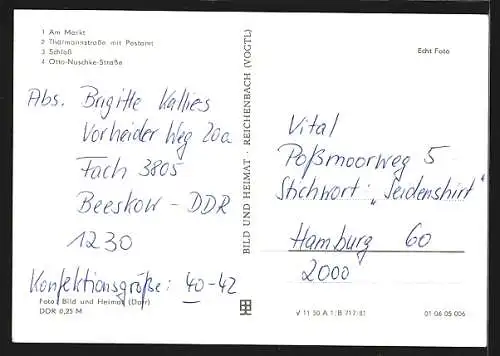 1 Am Markt
2 Thälmannstraße mit Postamt
3 Schloß
4 Otto-Nuschke-Straße
Abs. Brigitte Kallies
Vorheider Weg 20a
Fach 3805
Beeskow - DDR
1230
Konfektionsgröße: 40-42
Foto: Bild und Heimat (Darr)
DDR 0,25 M
BILD UND HEIMAT · REICHENBACH (VOGTL)
Echt Foto
Vital
Poßmoorweg 5
Stichwort: „Seidenshirt"
Hamburg 60
2000
V 11 50 A 1/B 717/81
01 06 05 006